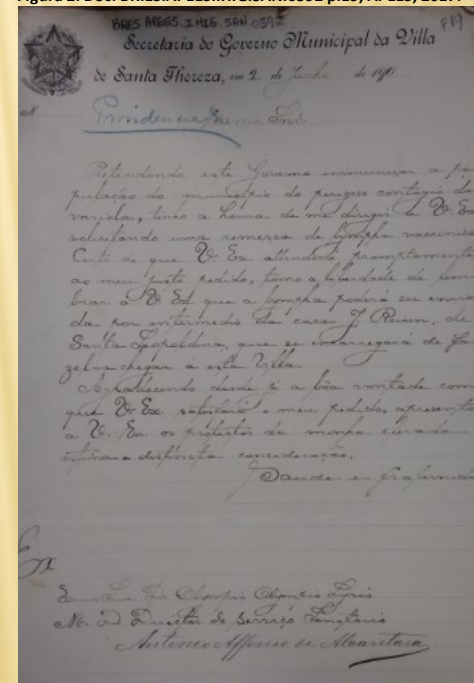 BRES APEES.IHIG.SAN 059
P.19
Secretaria do Governo Municipal da Villa
de Santa Thereza, em 2 de Junho de 190
N
Providencia Exmo Snr.
Pretendendo este Governo immunisar a po
pulação do municipio do perigoso contagio da
variola, tenho a honra de me dirigir a V. Ex
solicitando uma remessa de lympha vaccinica
Certo de que V. Ex attenderá promptamente
ao meu justo pedido, tomo a liberdade de lem
brar a V. Ex que a lympha poderá ser envia
da por intermedio da casa J. Reisen, de
Santa Leopoldina, que se encarregará de fa
zel-a chegar a esta Villa.
Agradecendo desde já a bôa vontade com
que V. Ex satisfará o meu pedido, apresento
a V. Ex. os protestos da minha elevada
estima e distincta consideração.
Saude e fraternidade
Ex
Snr. Dr. Olympio Lyrio
M. D. Director do Serviço Sanitario
Antonio Affonso de Alcantara